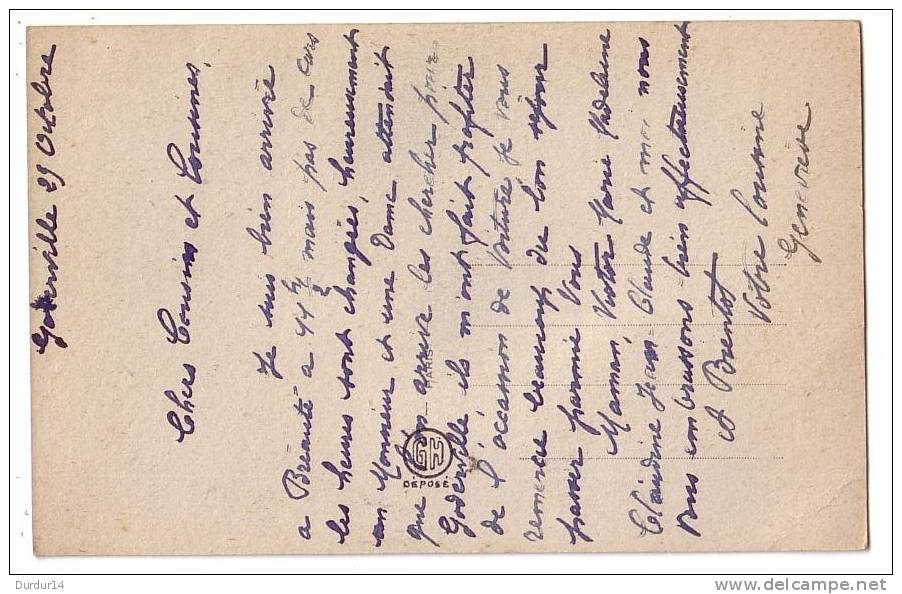 Goderville 29 Octobre
Chers Cousins et Cousines,
Je suis bien arrivée
a Bréauté a 44 mais pas de cars
les heures sont changées, heureusement
un Monsieur et une Dame attendait
que l'on arrive les chercher pour
Goderville, ils m'ont fait profiter
de l'occasion de voiture, je vous
remercie beaucoup du bon séjour
passer parmie Vous
Maman, Victor Marie Madeleine
Claudine Jean-Claude et moi nous
vous embrassons bien affectueusement
A Bientot
Votre Cousine
Geneviève
PARIS
GH
DÉPOSÉ
Durdur14
www.delcampe.net